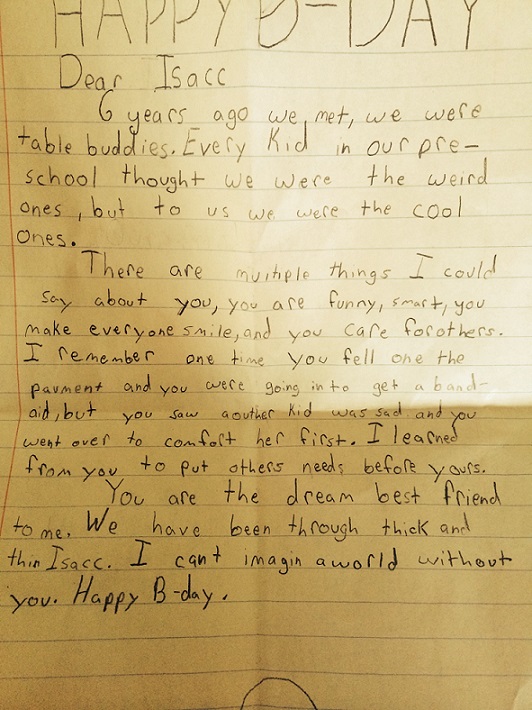 HAPPY B-DAY
Dear Isacc
6 years ago we met, we were
table buddies. Every Kid in our pre-
school thought we were the weird
ones, but to us we were the cool
ones.
There are multiple things I could
say about you, you are funny, smart, you
make everyone smile, and you care for others.
I remember one time you fell one the
pavment and you were going in to get a band-
aid, but you saw aouther kid was sad and you
went over to comfort her first. I learned
from you to put others needs before yours.
You are the dream best friend
to me. We have been through thick and
thin Isacc. I can't imagin a world without
you. Happy B-day.